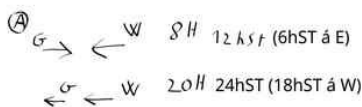 Ⓐ G W 8H 12hst (6hST á E)
G W 20H 24hST (18hST á W)